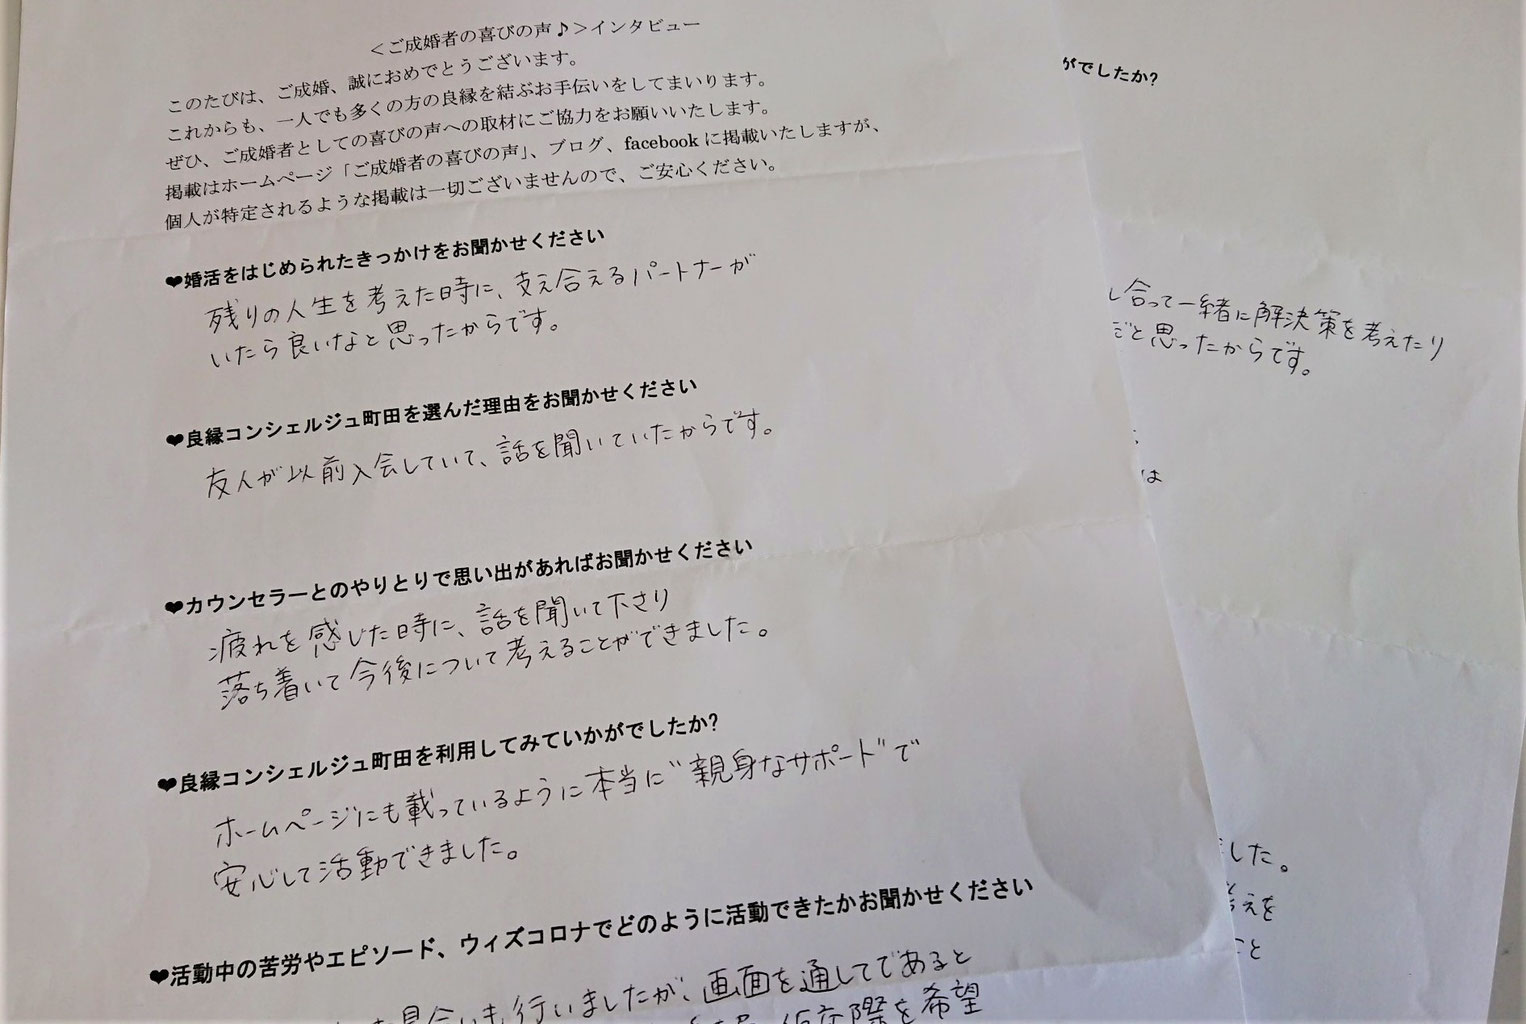 ＜ご成婚者の喜びの声♪＞インタビュー
このたびは、ご成婚、誠におめでとうございます。
これからも、一人でも多くの方の良縁を結ぶお手伝いをしてまいります。
ぜひ、ご成婚者としての喜びの声への取材にご協力をお願いいたします。
掲載はホームページ「ご成婚者の喜びの声」、ブログ、facebookに掲載いたしますが、
個人が特定されるような掲載は一切ございませんので、ご安心ください。
❤婚活をはじめられたきっかけをお聞かせください
残りの人生を考えた時に、支え合えるパートナーが
いたら良いなと思ったからです。
❤良縁コンシェルジュ町田を選んだ理由をお聞かせください
友人が以前入会していて、話を聞いていたからです。
❤カウンセラーとのやりとりで思い出があればお聞かせください
疲れを感じた時に、話を聞いて下さり
落ち着いて今後について考えることができました。
❤良縁コンシェルジュ町田を利用してみていかがでしたか?
ホームページにも載っているように本当に"親身なサポート"で
安心して活動できました。
❤活動中の苦労やエピソード、ウィズコロナでどのように活動できたかお聞かせください
見合いも行いましたが、画面を通してであると
仮交際を希望
がでしたか?
し合って一緒に解決策を考えたり
だと思ったからです。
は
した。
考えを
こと